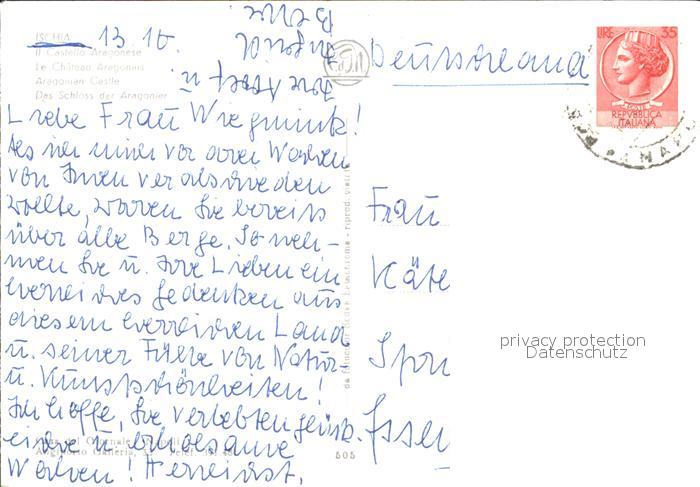 ISCHIA 13.10.
Il Castello Aragonese
Le Château Aragonais
Aragonian Castle
Das Schloss der Aragonier
Liebe Frau Wiegmink!
Als ich mich vor drei Wochen
von Ihnen verabschieden
wollte, waren Sie bereits
über alle Berge. So neh-
men Sie u. Ihre Lieben ein
herzliches Gedenken aus
diesem herrlichen Land
u. seiner Fülle von Natur-
u. Kunstschönheiten!
Ich hoffe, Sie verlebten glück-
liche u. erholsame
Wochen! Herzlichst,
Ihre
u.
Deutschland
Frau
Käte
Essen
LIRE 35
REPVBBLICA
ITALIANA
privacy protection
Datenschutz
505